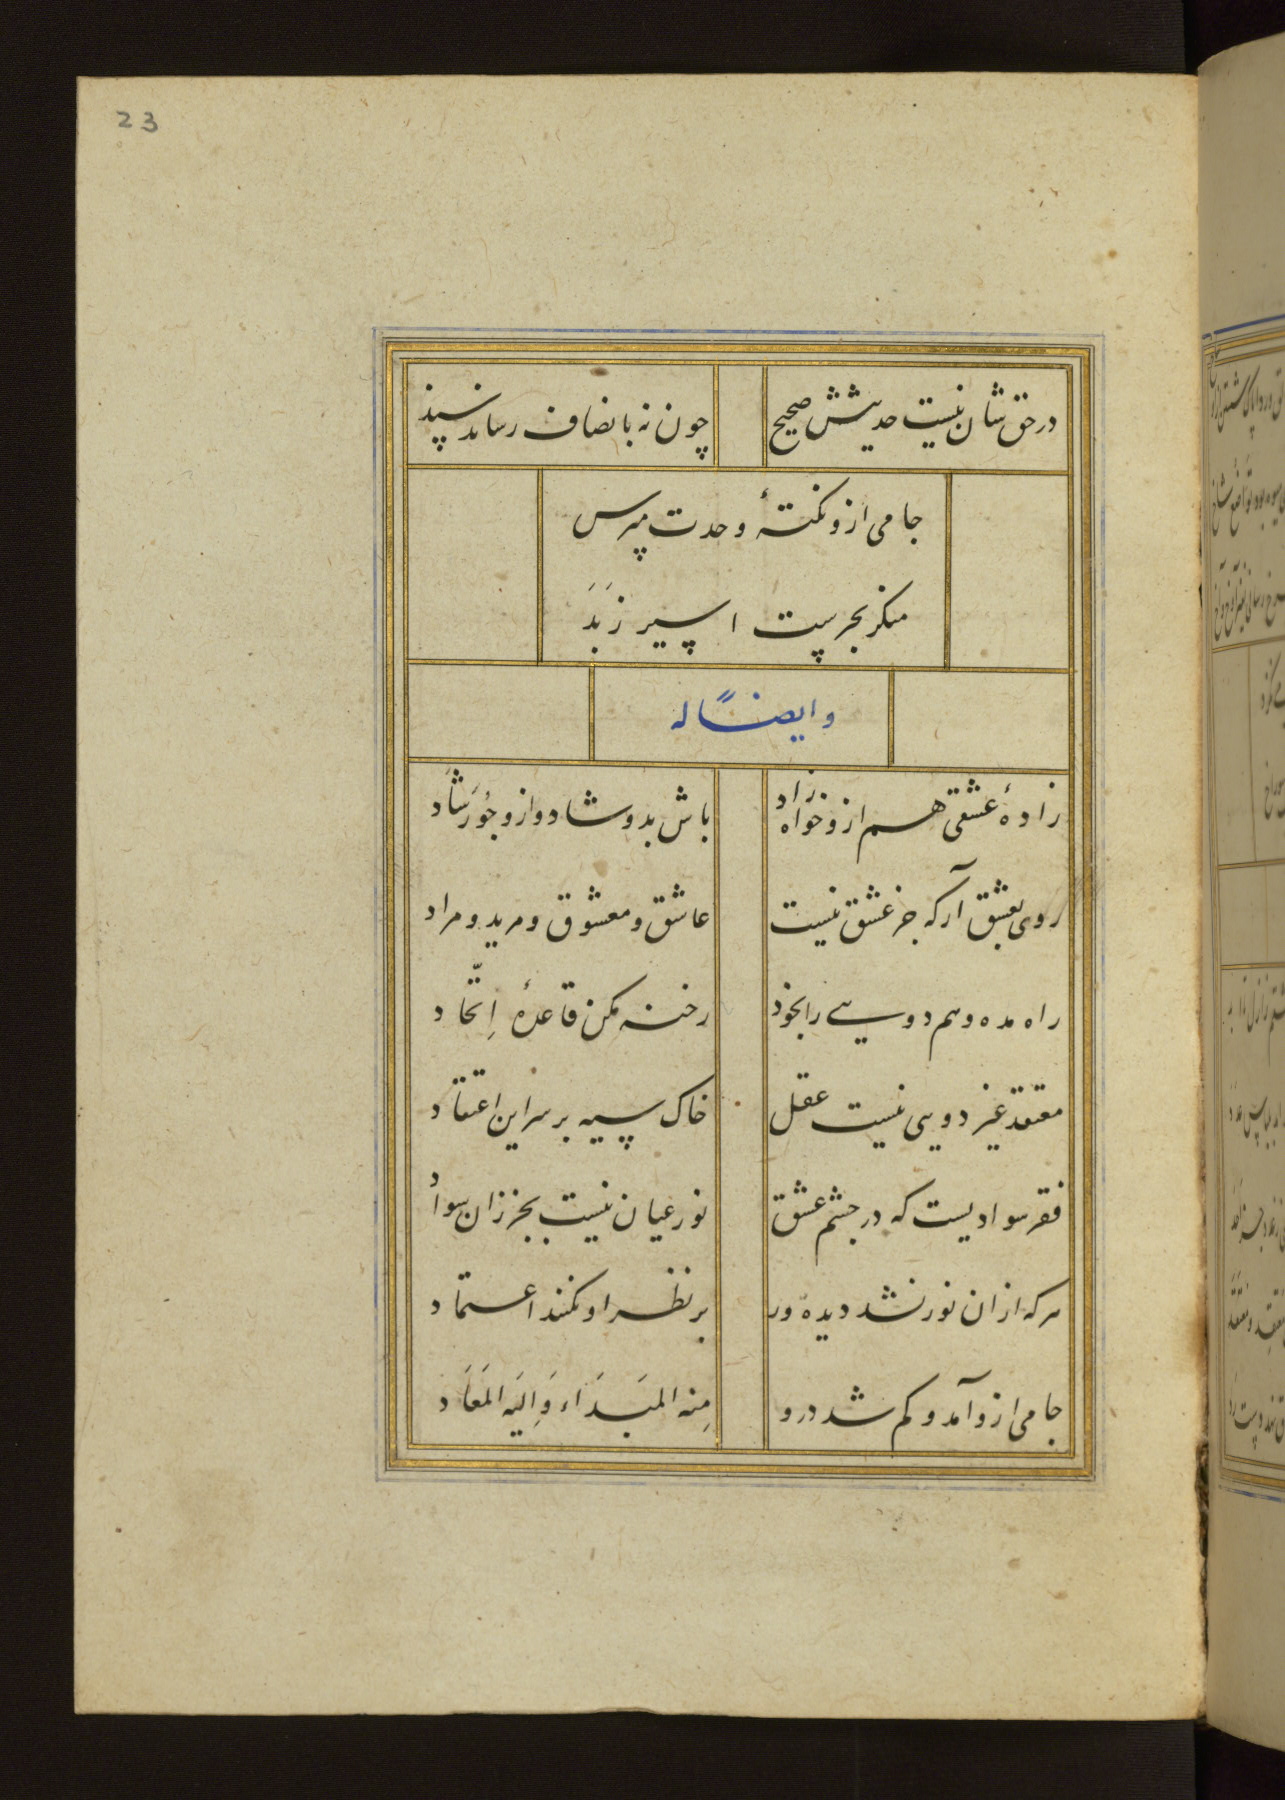 23
در حق شان نیست حدیثش صحیح
چون نه بانصاف رساند سند
جامی ازو نکتهٔ وحدت مپرس
منکر بحرست اسیر زَبَدَ
وایضاً له
زادهٔ عشقی هم ازو خواه زاد
باش بدو شاد و ازو جُو رَشَاد
روی بعشق آر که جز عشق نیست
عاشق و معشوق و مرید و مراد
راه مده وهم دویی را بخود
رخنه مکن قاعدهٔ اِتّحاد
معتقد غیر دویی نیست عقل
خاک سیه بر سر این اعتقاد
فقر سوادیست که در چشم عشق
نور عیان نیست بجز زان سواد
هرکه ازان نور نشد دیده ور
بر نظر او نکنند اعتماد
جامی ازو آمد و کم شد درو
مِنه المَبدَاء وَاِلیَه المَعَاد